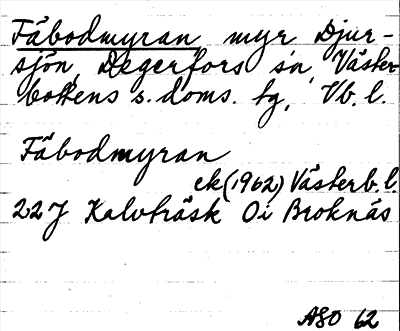 Fäbodmyran, myr Djur-
sjön, Degerfors sn, Väster-
bottens s. doms. tg, Vb. l.
Fäbodmyran
ek (1962) Västerb. l.
22J Kalvträsk Oi Broknäs
ASO 62